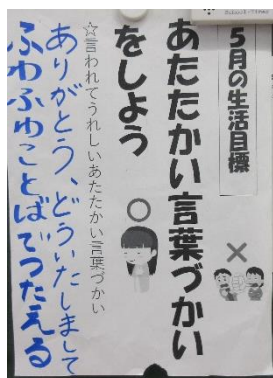 5月の生活目標
あたたかい言葉づかい
をしよう
☆言われてうれしいあたたかい言葉づかい
ありがとう、どういたしまして
ふわふわことばでつたえる